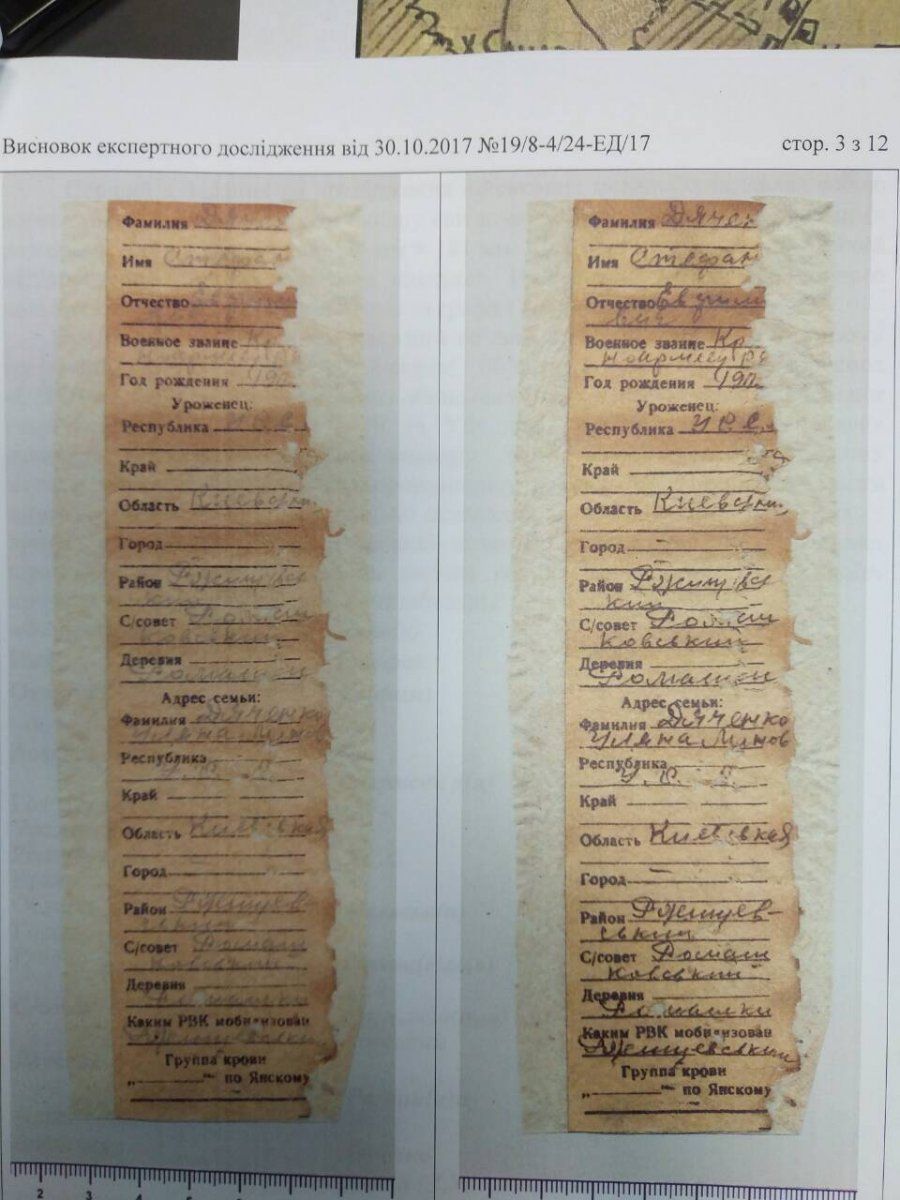 Висновок експертного дослідження від 30.10.2017 №19/8-4/24-ЕД/17 стор. 3 з 12
Фамилия
Имя Стефан
Отчество
Военное звание Кр
Год рождения 191
Уроженец:
Республика У С
Край
Область Киевск
Город
Район Ржищевс
кий
С/совет Ромаш
ковський
Деревня
Ромашки
Адрес семьи:
Фамилия Дяченко
Уляна
Республика
У.
Край
Область Киевская
Город
Район Ржищев-
ський
С/совет Ромаш
ковський
Деревня
Ромашки
Каким РВК мобилизован
Ржищевським
Группа крови
„ “ по Янскому
Фамилия Дячен
Имя Стефан
Отчество Ев
Военное звание Кр
ноармеец
Год рождения 191
Уроженец:
Республика У С
Край
Область Киевск
Город
Район Ржищевс
кий
С/совет Ромаш
ковський
Деревня
Ромашки
Адрес семьи:
Фамилия Дяченко
Уляна
Республика
У.
Край
Область Киевская
Город
Район Ржищев-
ський
С/совет Ромаш
ковський
Деревня
Ромашки
Каким РВК мобилизован
Ржищевським
Группа крови
„ “ по Янскому
2 3 4 5 6